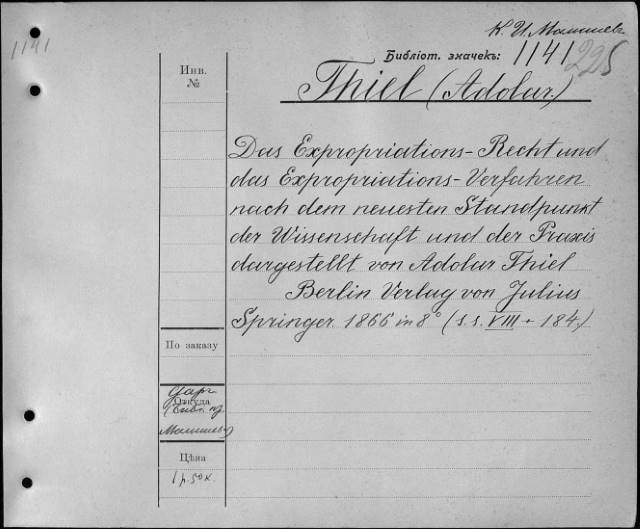 К. И. Малышев
1141
Библіот. значекъ: 1141
225
Инв.
№
Thiel (Adolar)
Das Expropriations-Recht und
das Expropriations-Verfahren
nach dem neuesten Standpunkt
der Wissenschaft und der Praxis
dargestellt von Adolar Thiel
Berlin Verlag von Julius
Springer 1866 in 8° (s.s. VIII + 184.)
По заказу
Откуда
Малышева)
Цѣна
1 р. 50 к.